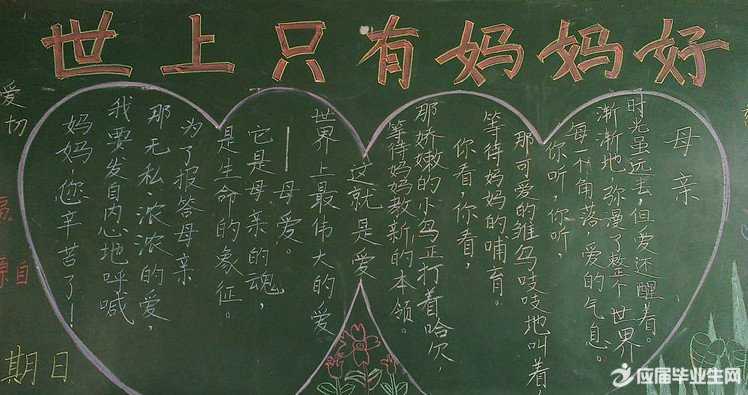 世上只有妈妈好
母亲
时光虽远去，但爱还醒着。
渐渐地弥漫了整个世界
每一个角落 爱的气息。
你听，你听，
那可爱的雏鸟吱吱地叫着，
等待妈妈的哺育。
你看，你看，
那娇嫩的小鸟正打着哈欠，
等待妈妈教新的本领。
这就是爱
世界上最伟大的爱
——母爱。
它是母亲的魂，
是生命的象征。
为了报答母亲
那无私浓浓的爱，
我要发自内心地呼喊
妈妈，您辛苦了！
爱切
自
期日
应届毕业生网